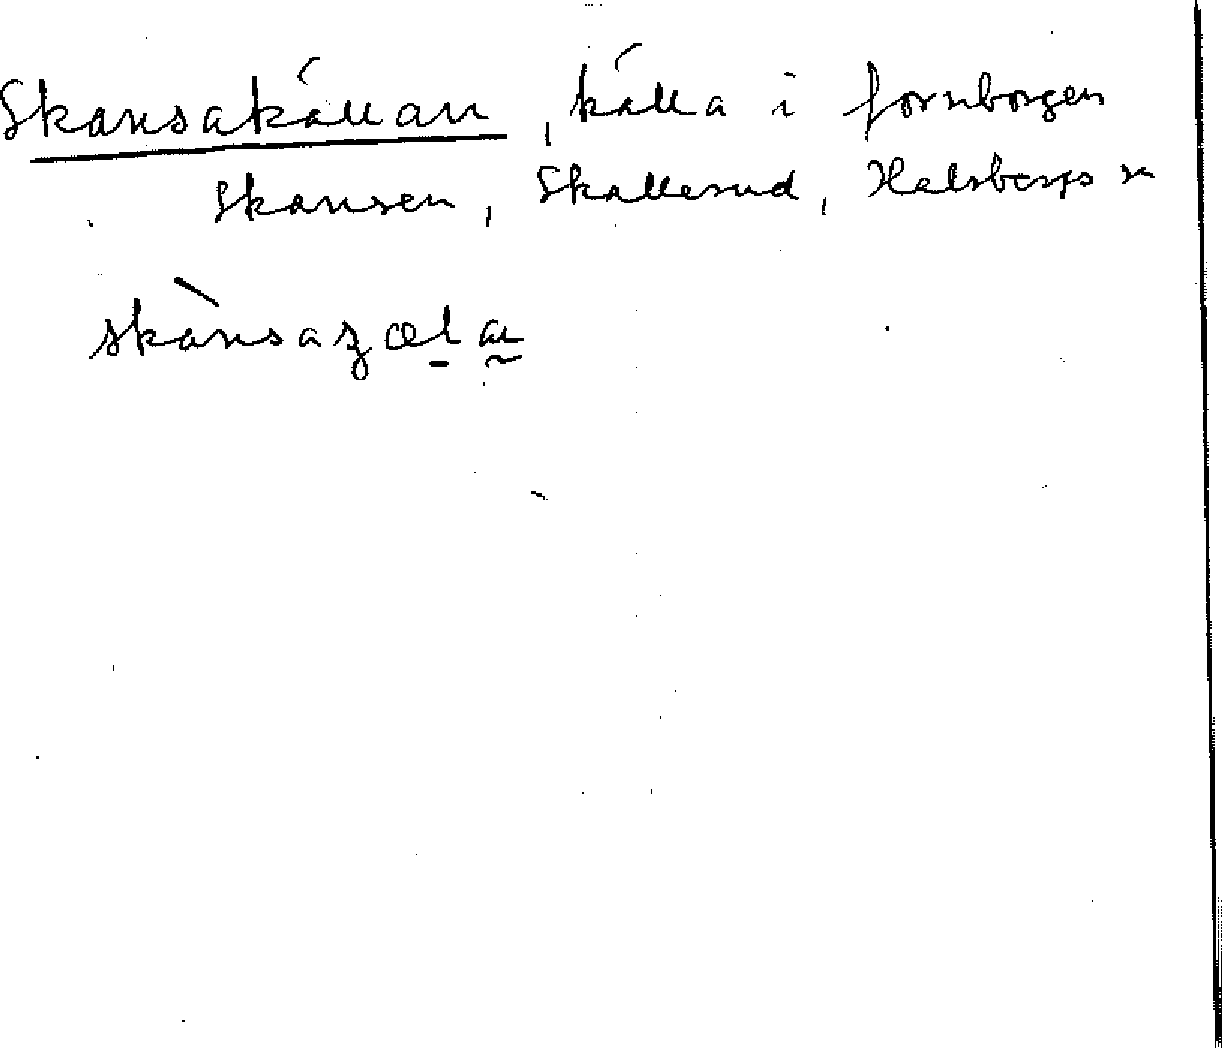 Skansakällan, källa i fornborgen
Skansen, Skallerud, Halsbergs sn
skànsaʒælan